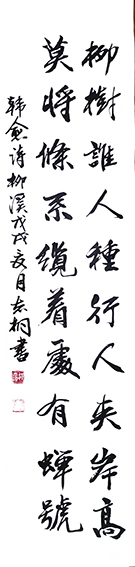 柳樹誰人種行人夹岸高
莫將條系纜着處有蟬號
韓愈诗柳溪戊戌亥月志桐書